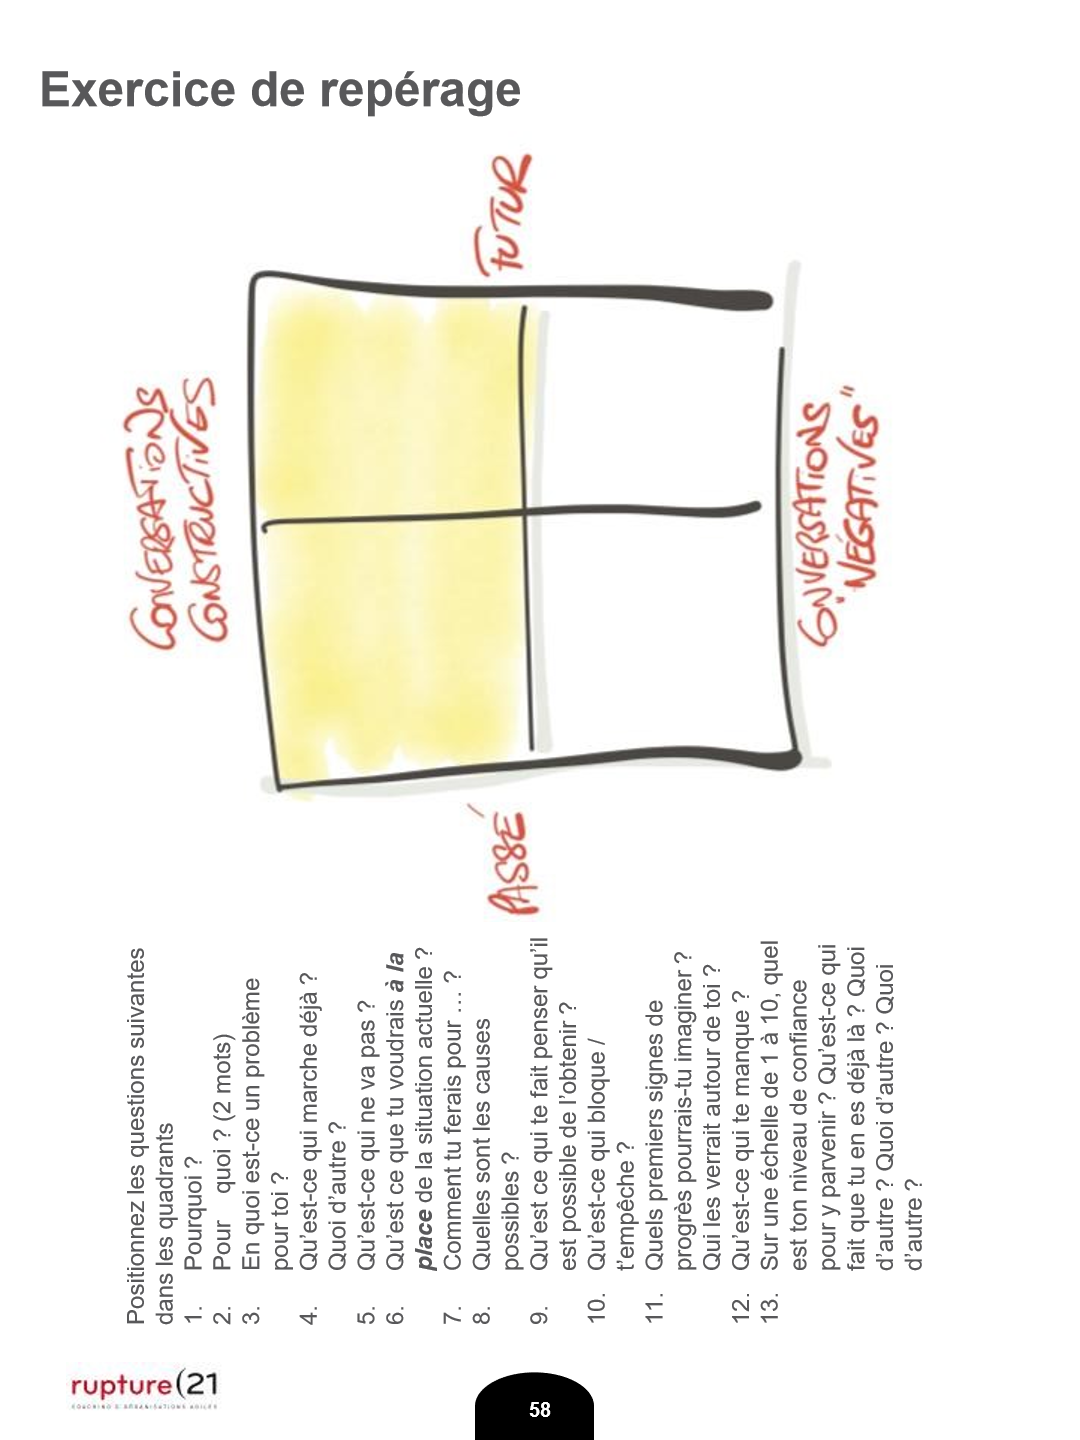 Exercice de repérage
CONVERSATIONS
CONSTRUCTIVES
PASSÉ
FUTUR
CONVERSATIONS
"NÉGATIVES"
Positionnez les questions suivantes
dans les quadrants
1. Pourquoi ?
2. Pour quoi ? (2 mots)
3. En quoi est-ce un problème
pour toi ?
4. Qu'est-ce qui marche déjà ?
Quoi d'autre ?
5. Qu'est-ce qui ne va pas ?
6. Qu'est ce que tu voudrais à la
place de la situation actuelle ?
7. Comment tu ferais pour … ?
8. Quelles sont les causes
possibles ?
9. Qu'est ce qui te fait penser qu'il
est possible de l'obtenir ?
10. Qu'est-ce qui bloque /
t'empêche ?
11. Quels premiers signes de
progrès pourrais-tu imaginer ?
Qui les verrait autour de toi ?
12. Qu'est-ce qui te manque ?
13. Sur une échelle de 1 à 10, quel
est ton niveau de confiance
pour y parvenir ? Qu'est-ce qui
fait que tu en es déjà là ? Quoi
d'autre ? Quoi d'autre ? Quoi
d'autre ?
rupture(21
COACHING D'ORGANISATIONS AGILES
58